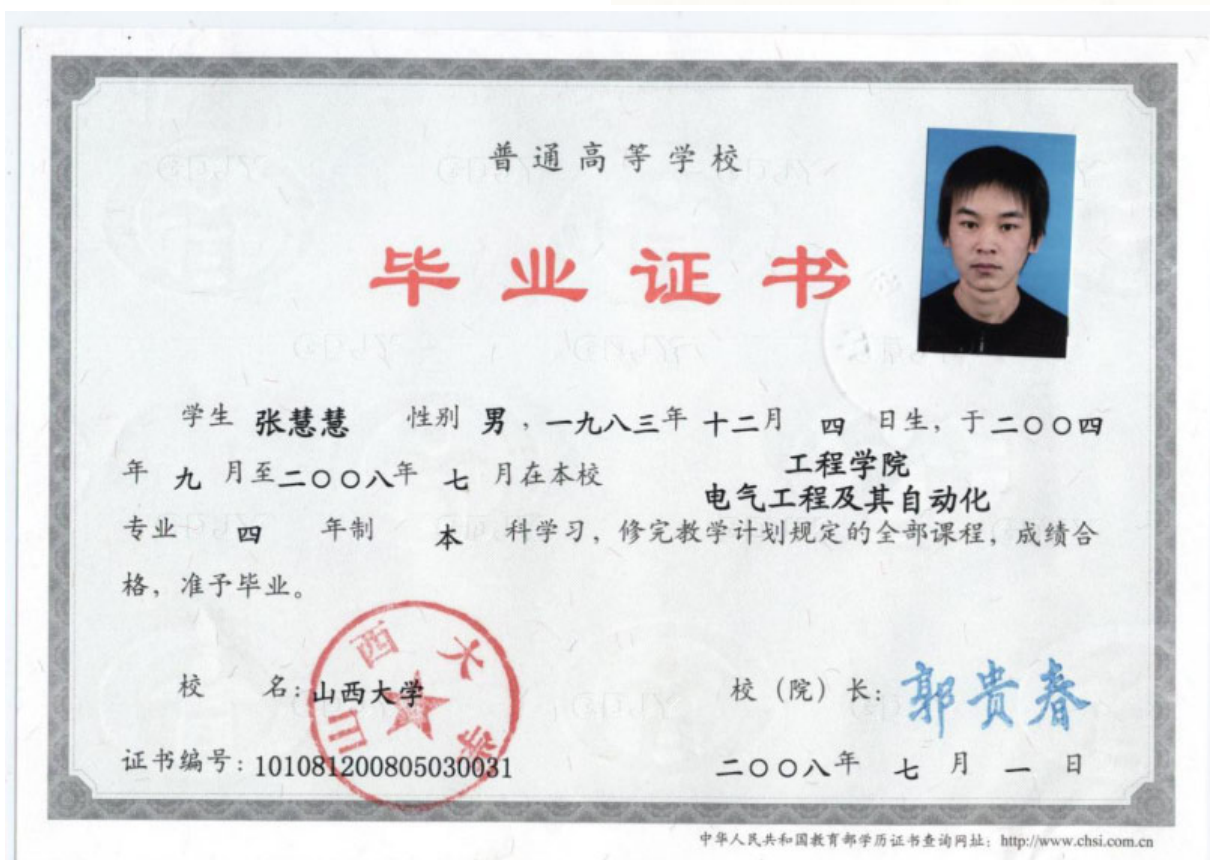 普通高等学校
毕业证书
学生 张慧慧 性别 男，一九八三年 十二月 四 日生，于二〇〇四
年 九 月至二〇〇八年 七 月在本校 工程学院
电气工程及其自动化
专业 四 年制 本 科学习，修完教学计划规定的全部课程，成绩合
格，准予毕业。
山西大学
校 名：山西大学
校（院）长：郭贵春
证书编号：101081200805030031
二〇〇八年 七 月 一 日
中华人民共和国教育部学历证书查询网址：http://www.chsi.com.cn